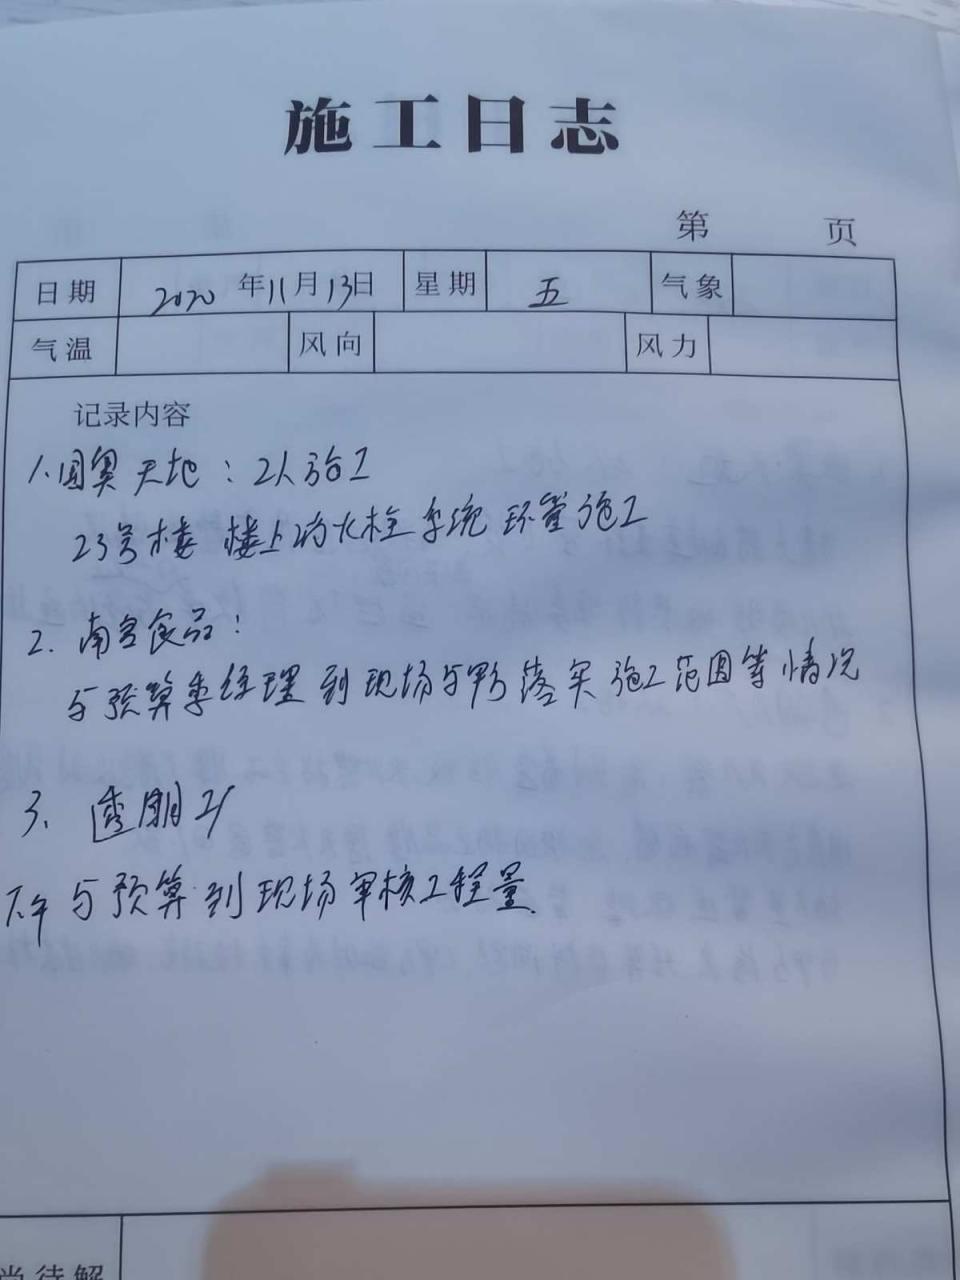 施工日志
第 页
日期 2020 年11月13日 星期 五 气象
气温 风向 风力
记录内容
1、国奥天地：2人施工
23号楼 楼上消火栓系统 环管施工
2、南宫食品：
与预算季经理到现场与甲方落实施工范围等情况
3、透明
下午与预算到现场审核工程量.
尚待解